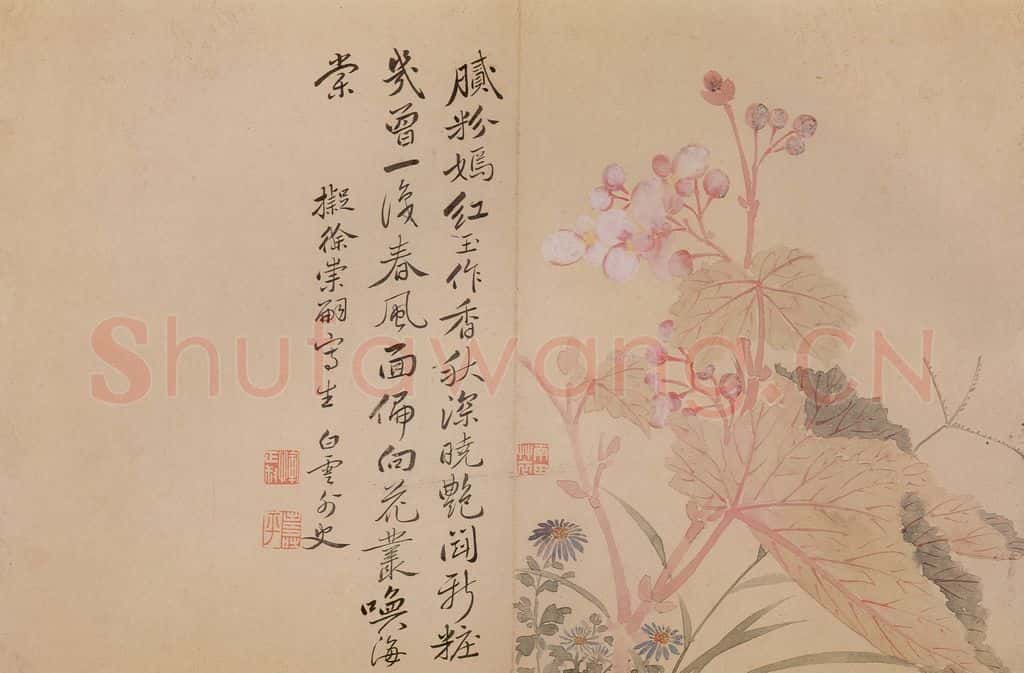 膩粉嫣紅玉作香秋深曉艷鬪新粧
幾曾一春風面偏向花叢喚海
棠
擬徐崇嗣寫生 白雲外史
壽平
Shufawang.CN